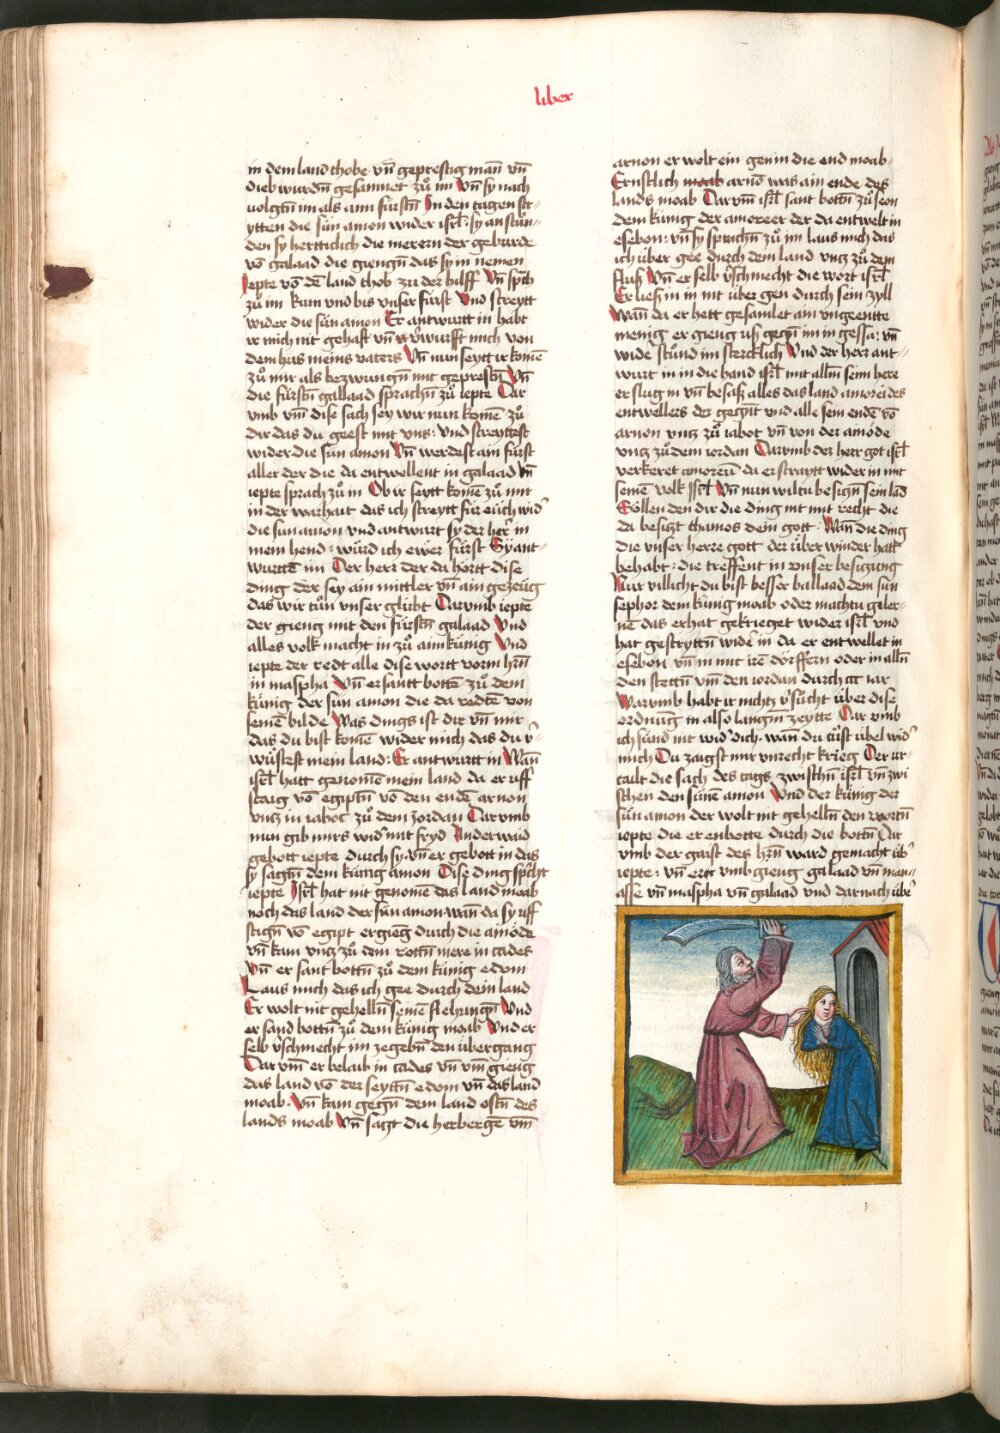 liber
in dem land thobe vn̄ geprestig man̄ vn̄
dieb wurdn̄ gesammet zů im Vn̄ sy nach
uolgtn̄ im als aim fürstn̄ In den tagen str-
ytten die sün amon wider isrl̄: sy anstůn-
den sy hertticlich die merern der geburde
vō galaad die giengn̄ das sy in nemen
Jepte vō dē land thob zu der hilff Vn̄ sp̄ch
zů im kum vnd bis vnser fürst Vnd streytt
wider die sün amon Er antwurtt in habt
ir mich nit gehast vn̄ v̄wurfft mich von
dem hus meins vaters Vn̄ nun seytt ir komē
zů mir als bezwungn̄ mit geprestn̄ Vn̄
die fürstn̄ gallaad sprachn̄ zů iepte Dar
vmb vm̄ dise sach sey wir nun komē zů
dir das du geest mit vns: vnd streyttest
wider die sün amon Vn̄ werdest ain fürst
aller der die da entwellent in galaad Vn̄
iepte sprach zů in Ob ir seytt komē zů mir
in der warhait das ich streytt für eüch wid̄
die sun amon vnd antwurt sy der her̄ in
mein hend: würd ich ewer fürst Sy ant-
wurttē im Der herr der da hortt dise
ding der sey ain mittler vn̄ ain gezeüg
das wir tůn vnser glübt Darumb iepte
der gieng mit den fürstn̄ galaad Vnd
alles volk macht in zů aim künig Vnd
iepte der redt alle dise wortt vorm hr̄n
in maspha Vn̄ er santt bottē zů dem
künig der sün amon die da redtē von
seinē bilde Was dings ist dir vn̄ mir
das du bist komē wider mich das du v̄-
wüstest mein land: Er antwurtt in Wan̄
isrl̄ hatt genomē mein land da er uff
staig vō egiptn̄ vō den endē arnon
vntz in iaboc zů dem Jordan Darumb
nun gib mirs wid̄ mit fryd Anderwaid
gebott iepte durch sy. vn̄ er gebott in das
sy sagtn̄ dem künig amon Dise ding sp̄cht
iepte Isrl̄ hat nit genomē das land moab
noch das land der sün amon. wan̄ da sy uff
stign̄ vō egipt er gieng durch die ainöde
vn̄ kam vntz zů dem rottn̄ mere in cades
Vn̄ er sant bottn̄ zů dem künig edom
Laus mich das ich gee durch dein land
Er wolt nit gehelln̄ seinē flehungn̄ Vnd
er sand bottn̄ zů dem künig moab Vnd er
selb v̄schmecht im zegebn̄ den übergang
Darum̄ er belaib in cades vn̄ vm̄ gieng
das land vō der seyttn̄ edom vn̄ das land
moab. Vn̄ kam gegn̄ dem land ostn̄ des
lands moab Vn̄ satzt die herbergē vm̄
arnon er wolt ein gen in die end moab.
Ernstlich moab arnō was ain ende des
lands moab Darum̄ isrl̄ sant bottn̄ zů seon
dem künig der amoreer der da entwelt in
esebon: vn̄ sy sprachn̄ zů im laus mich das
ich über gee durch dem land vntz zů dem
fluß Vn̄ er selb v̄schmecht die wort isrl̄
Er ließ in in nit über gen durch sein zyll
Wan̄ da er hett gesamlet ain vngeentte
menig er gieng uß gegn̄ im in gessa: vn̄
wid̄ stůnd im sterctlich Vnd der herr ant-
wurt in in die hand isrl̄ mit allm̄ seim here
er slug in vn̄ besaß alles das land amorei des
entwellers der gegn̄t vnd alle sein endē vō
arnon vntz zů iabot vn̄ von der ainöde
vntz zů dem iordan Darumb der herr got isrl̄
verkeret amoreū da er straytt wider in mit
seinē volk Isrl̄ Vn̄ nun wiltu besign̄ sein lād
Söllen den dir die ding nit mit recht die
da besitzt chamos dein gott: Wan̄ die ding
die vnser herre gott der überwinder hatt
behabt: die treffent in vnser besitzung
Nur villicht du bist besser ballaad dem sun
sephor dem künig moab oder machtu geler-
nē das er hat gekrieget wider isrl̄ vnd
hat gestryttn̄ wid̄ in da er entwellet in
esebon vn̄ in mit irē dörffern oder in alln̄
den stettn̄ vm̄ den iordan durch ccc iar
Warumb habt ir nichtz v̄sůcht über dise
ordnung in also langn̄ zeytte Darumb
ich sünd nit wid̄ dich. wan̄ du tůst übel wid̄
mich Du zaigst mir vnrecht krieg Der ur-
tailt die sach des tags zwischn̄ isrl̄ vn̄ zwi
schen den sünē amon Vnd der künig der
sün amon der wolt nit gehelln̄ den wortn̄
iepte die er enbotte durch die bottn̄ Dar
vmb der gaist des hr̄n ward gemacht üb̄
iepte: vn̄ er vmb gieng galaad vn̄ man-
asse vn̄ maspha vn̄ galaad vnd darnach übē